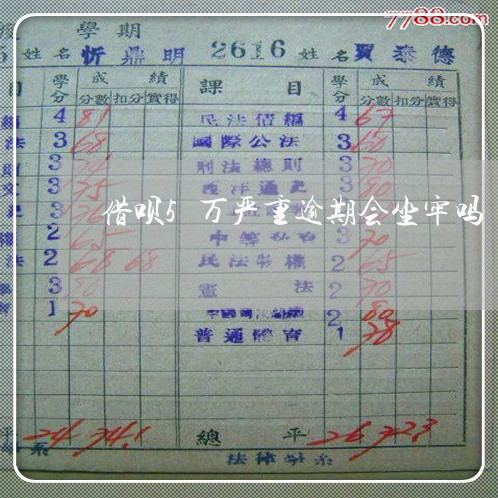 7788.com
學期
5 姓名 忻鼎明 2616 姓名 賈泰德
目 學分 成績 課目 學分 成績
分數 扣分 實得 分數 扣分 實得
4 81 民法債編 4 67
法 3 68 國際公法 3 60
3 刑法總則 3 70
3 75 西洋通史 3 80
借呗5 万严重逾期会坐牢吗
2 65 3 70
法 2 68 68 民法物權 2 65
3 80 憲法 2 70
1 70 2 80
普通體育 1 78
平 24 74.1 總平 26 72.3
系 法律學系